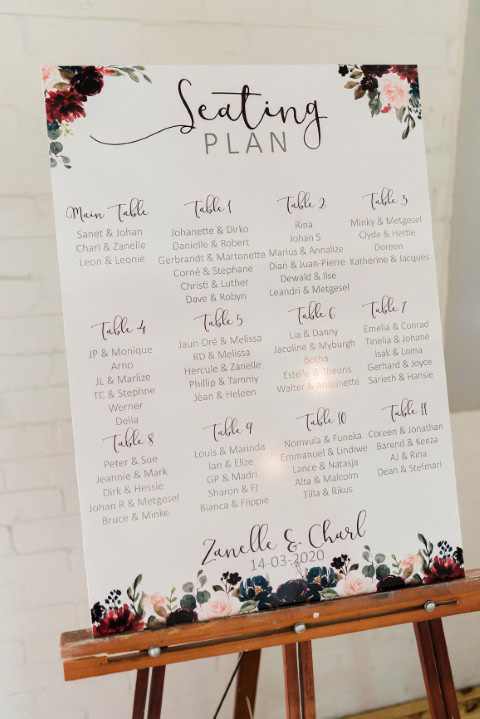 Seating
PLAN
Main Table
Sanet & Johan
Charl & Zanelle
Leon & Leonie
Table 1
Johanette & Dirko
Danielle & Robert
Gerbrandt & Martonette
Corné & Stephane
Christi & Luther
Dave & Robyn
Table 2
Rina
Johan S
Marius & Annalize
Dian & Juan-Pierre
Dewald & Ilse
Leandri & Metgesel
Table 3
Minky & Metgesel
Clyde & Hettie
Doreen
Katherine & Jacques
Table 4
JP & Monique
Arno
JL & Marlize
TC & Stephne
Werner
Delia
Table 5
Jaun-Dré & Melissa
RD & Melissa
Hercule & Zanelle
Phillip & Tammy
Jean & Heleen
Table 6
Lia & Danny
Jacoline & Myburgh
Botha
Estelle & Theuns
Walter & Antoinette
Table 7
Emelia & Conrad
Tinelia & Johane
Isak & Loma
Gerhard & Joyce
Sarieth & Hansie
Table 8
Peter & Sue
Jeannie & Mark
Dirk & Hessie
Johan R & Metgesel
Bruce & Minke
Table 9
Louis & Marinda
Ian & Elize
GP & Madri
Sharon & FJ
Bianca & Flippie
Table 10
Nomvula & Funeka
Emmanuel & Lindiwe
Lance & Natasja
Alta & Malcolm
Tilla & Rikus
Table 11
Coreen & Jonathan
Barend & Keeza
AJ & Rina
Dean & Stefmari
Zanelle & Charl
14-03-2020